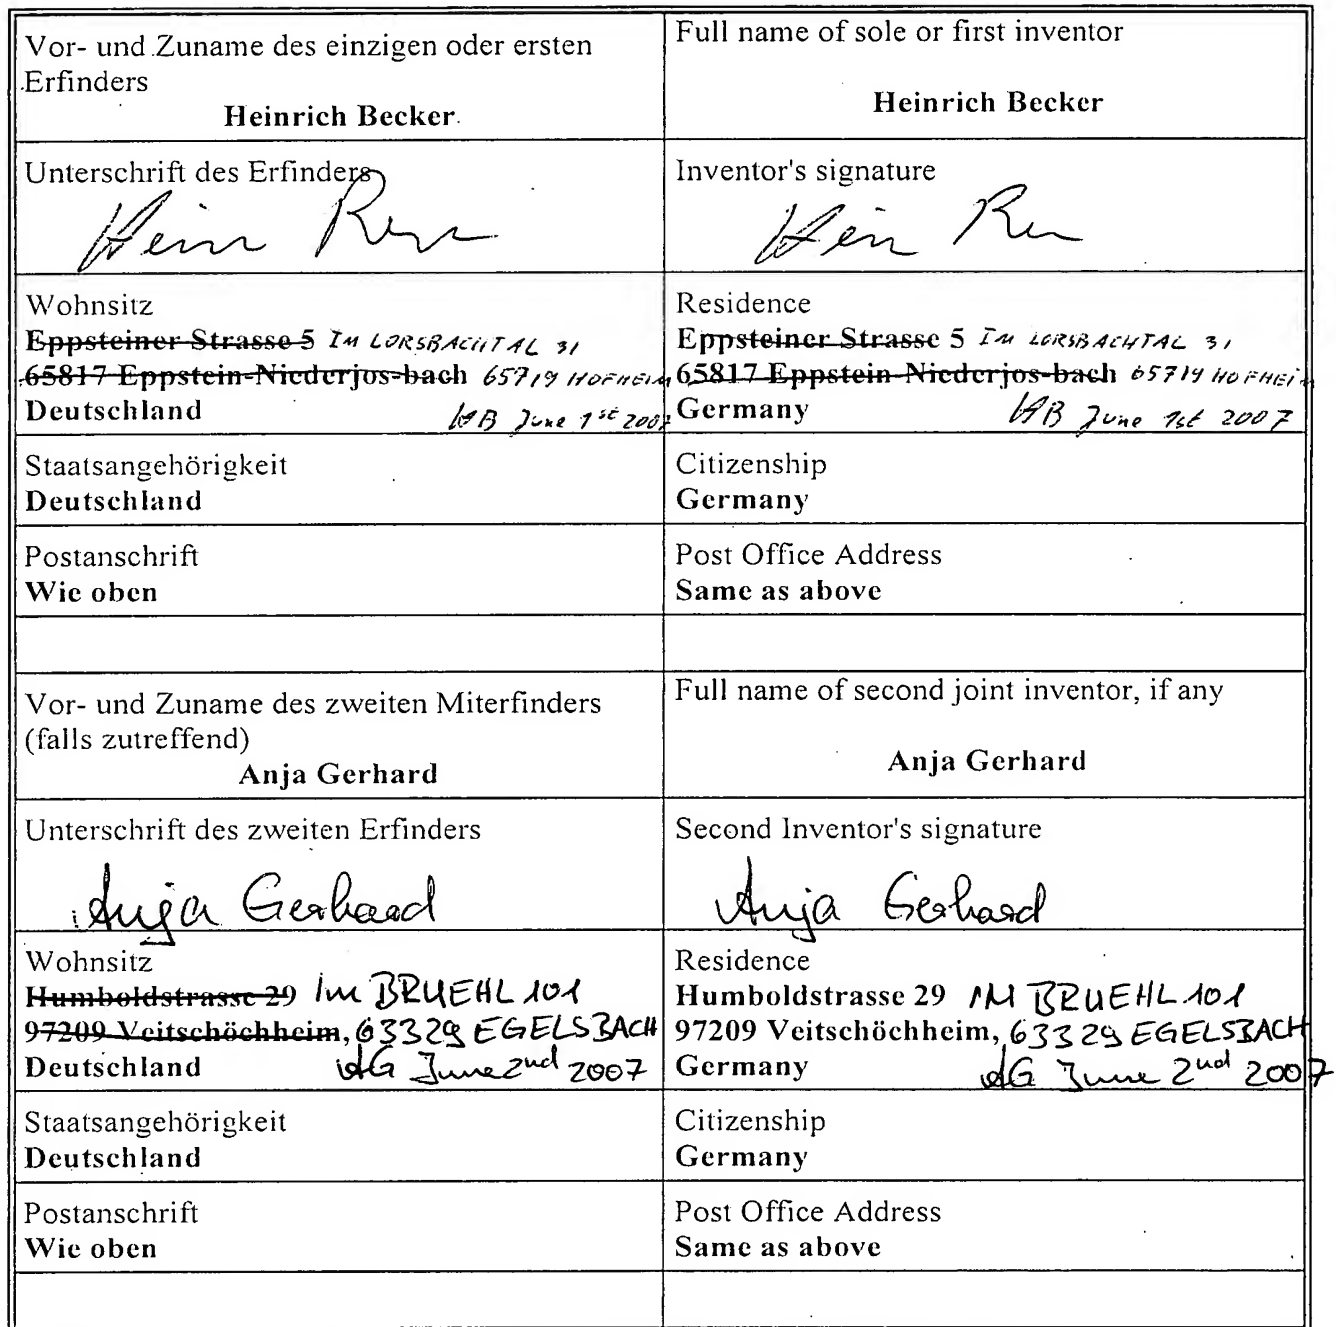 Vor- und Zuname des einzigen oder ersten
Erfinders
Heinrich Becker
Full name of sole or first inventor
Heinrich Becker
Unterschrift des Erfinders
Inventor's signature
Wohnsitz
Eppsteiner Strasse 5 IM LORSBACHTAL 31
65817 Eppstein-Niederjos-bach 65719 HOFHEIM
Deutschland HB June 1st 2007
Residence
Eppsteiner Strasse 5 IM LORSBACHTAL 31
65817 Eppstein-Niederjos-bach 65719 HOFHEIM
Germany HB June 1st 2007
Staatsangehörigkeit
Deutschland
Citizenship
Germany
Postanschrift
Wie oben
Post Office Address
Same as above
Vor- und Zuname des zweiten Miterfinders
(falls zutreffend)
Anja Gerhard
Full name of second joint inventor, if any
Anja Gerhard
Unterschrift des zweiten Erfinders
Anja Gerhard
Second Inventor's signature
Anja Gerhard
Wohnsitz
Humboldstrasse 29 Im BRUEHL 101
97209 Veitschöchheim, 63329 EGELSBACH
Deutschland AG June 2nd 2007
Residence
Humboldstrasse 29 IM BRUEHL 101
97209 Veitschöchheim, 63329 EGELSBACH
Germany AG June 2nd 2007
Staatsangehörigkeit
Deutschland
Citizenship
Germany
Postanschrift
Wie oben
Post Office Address
Same as above